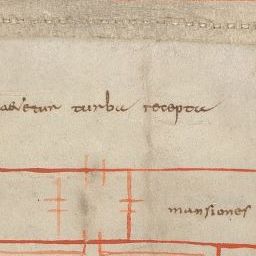 turba recepta
mansiones